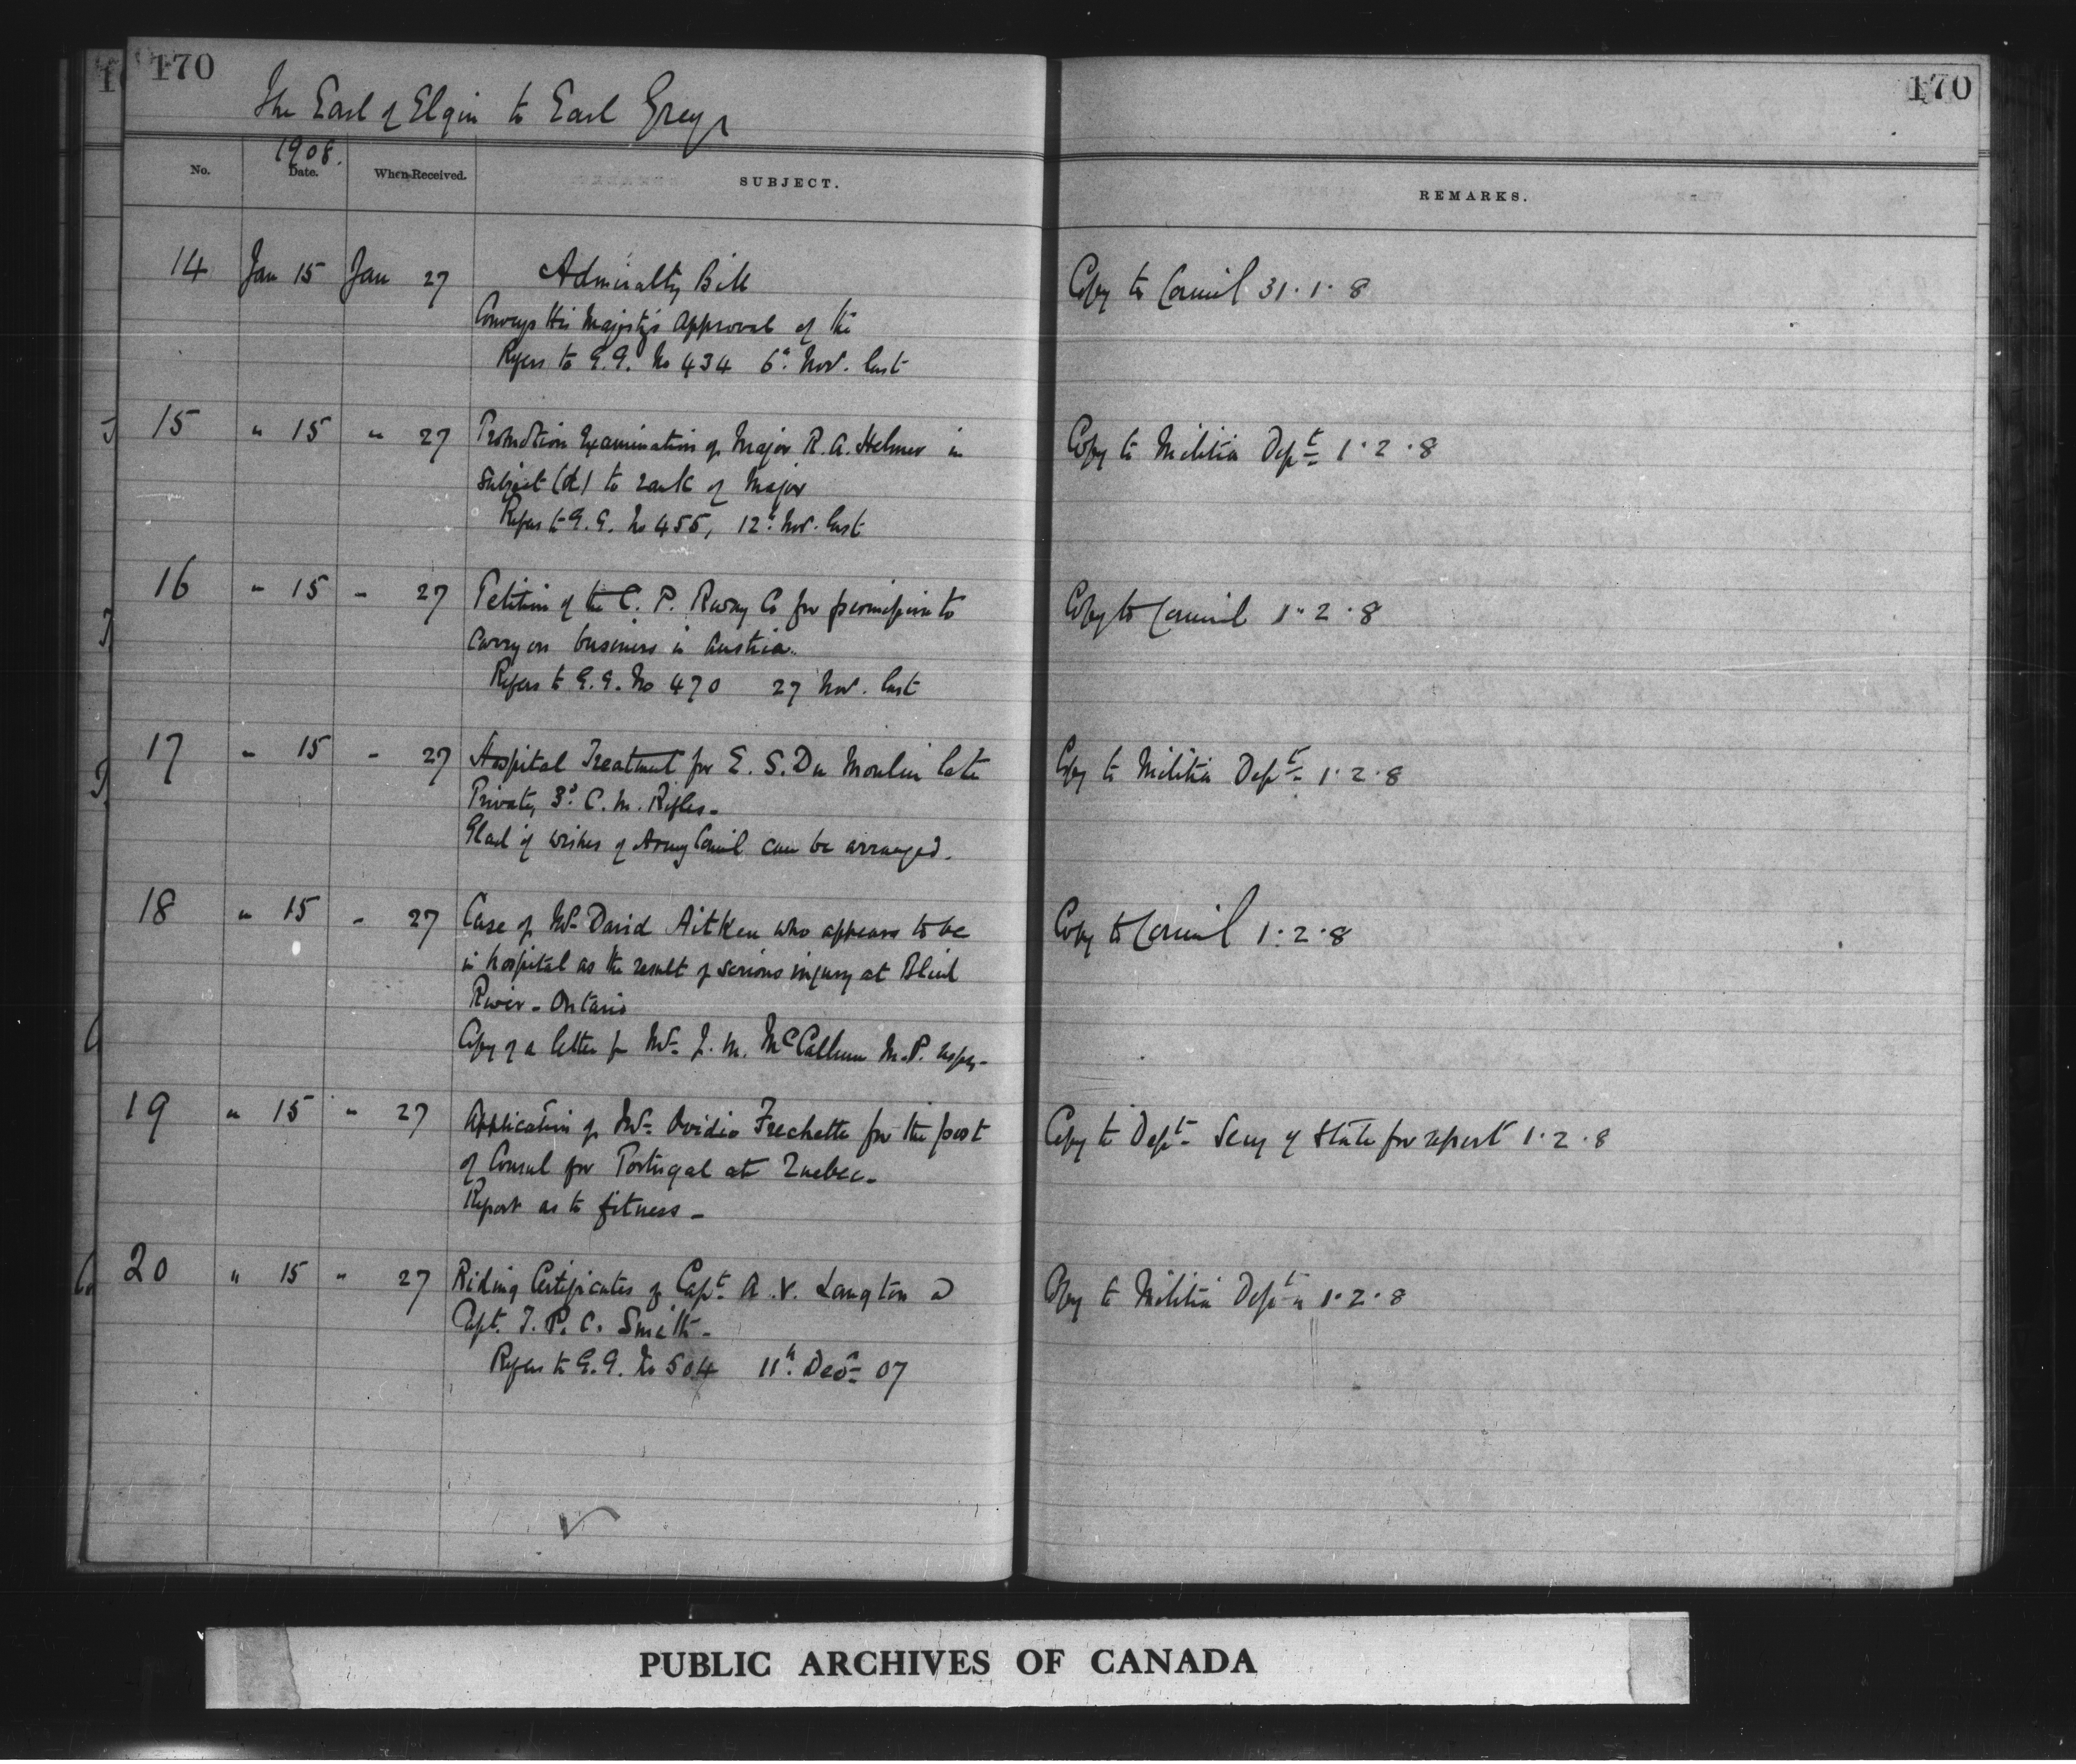 170
170
The Earl of Elgin to Earl Grey
1908.
No. Date. When Received. SUBJECT. REMARKS.
14 Jan 15 Jan 27 Admiralty Bill Copy to Council 31.1.8
Conveys His Majesty's Approval of the
Refers to G.G. No 434 6th Nov. last
15 " 15 " 27 Promotion Examination of Major R. A. Helmer in Copy to Militia Dept 1.2.8
Subject (d) to rank of Major
Refers to G.G. No 455, 12th Nov. last
16 " 15 " 27 Petition of the C. P. Railway Co for permission to Copy to Council 1.2.8
carry on business in Austria.
Refers to G.G. No 470 27 Nov. last
17 " 15 " 27 Hospital Treatment for E. S. Du Moulin late Copy to Militia Dept 1.2.8
Private, 3d C. M. Rifles.
Glad if wishes of Army Council can be arranged.
18 " 15 " 27 Case of Mr David Aitken who appears to be Copy to Council 1.2.8
in hospital as the result of serious injury at Blind
River - Ontario
Copy of a letter fr Mr J. M. McCallum M.P. respg.
19 " 15 " 27 Application of Mr Ovidio Frechette for the post Copy to Dept Secy of State for report 1.2.8
of Consul for Portugal at Quebec.
Report as to fitness -
20 " 15 " 27 Riding Certificates of Capt A. V. Langton & Copy to Militia Dept 1.2.8
Capt. J. P. C. Smith -
Refers to G.G. No 504 11th Decr 07
PUBLIC ARCHIVES OF CANADA